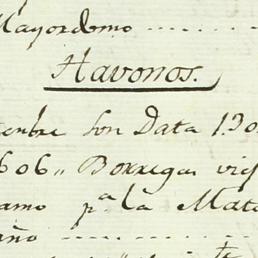 Mayordomo
Havonos.
son Data 130
606,, Borregas viej
amo p.ª la Mata
año